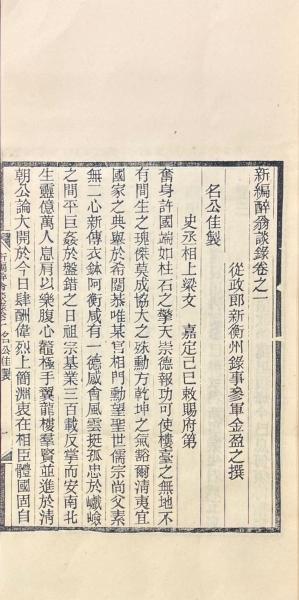 新編醉翁談錄卷之一
從政郎新衡州錄事參軍金盈之撰
名公佳製
史丞相上梁文 嘉定己巳敕賜府第
奮身許國端如柱石之擎天崇德報功可使樓臺之無地不
有間生之瑰傑莫成協大之殊勳方乾坤之氣豁爾清夷宜
國家之典舉於希闊恭唯某官相門動望聖世儒宗尚父素
無二心新傳衣鉢阿衡咸有一德感會風雲挺孤忠於巇嶮
之間平巨姦於盤錯之日祖宗基業三百載反掌而安南北
生靈億萬人息肩以樂腹心
極手翼龍樓羣賢並進於清
朝公論大開於今日肆酬偉烈上簡淵衷在相臣體國固自
名公佳製 一